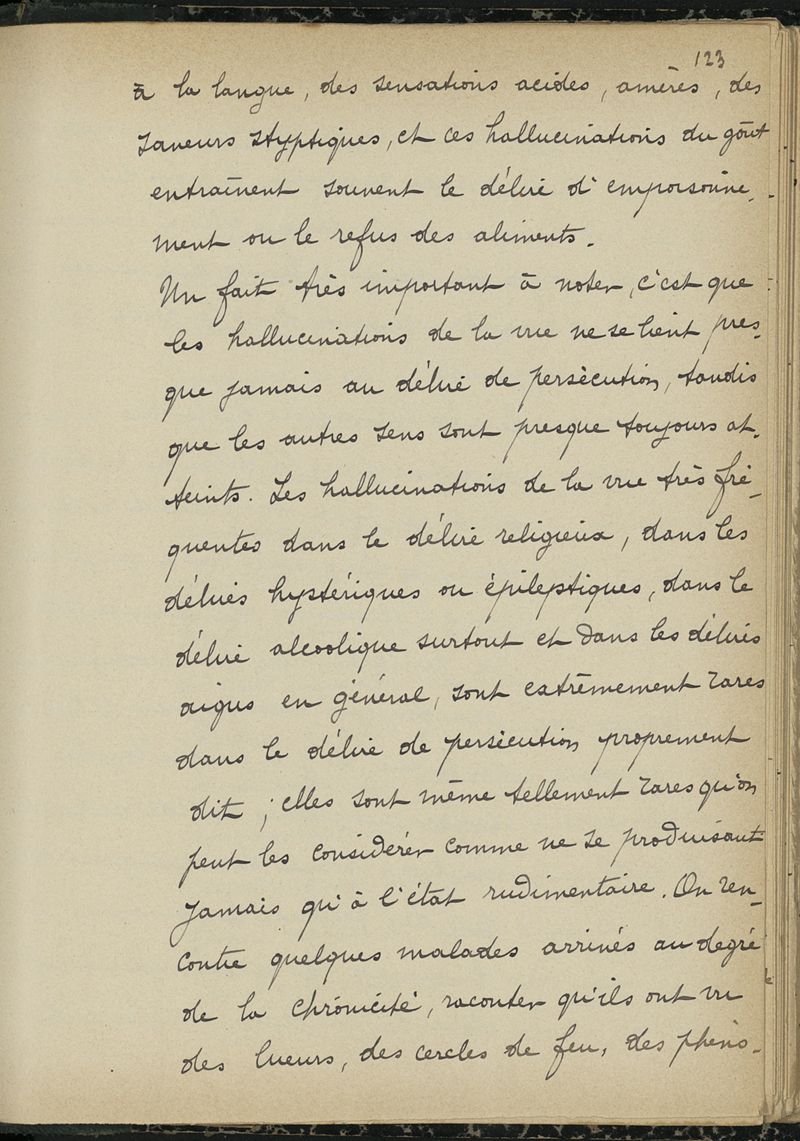 123
à la langue, des sensations acides, amères, des
saveurs styptiques, et ces hallucinations du goût
entraînent souvent le délire d'empoisonne-
ment ou le refus des aliments.
Un fait très important à noter, c'est que
les hallucinations de la vue ne se lient pres-
que jamais au délire de persécution, tandis
que les autres sens sont presque toujours at-
teints. Les hallucinations de la vue très fré-
quentes dans le délire religieux, dans les
délires hystériques ou épileptiques, dans le
délire alcoolique surtout et dans les délires
aigus en général, sont extrêmement rares
dans le délire de persécution proprement
dit ; elles sont même tellement rares qu'on
peut les considérer comme ne se produisant
jamais qu'à l'état rudimentaire. On ren-
contre quelques malades arrivés au degré
de la chronicité, raconter qu'ils ont vu
des lueurs, des cercles de feu, des phéno-